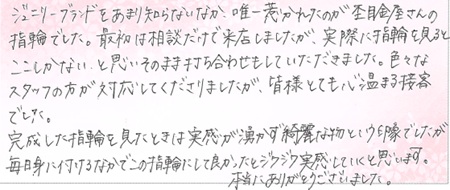 ジュエリーブランドをあまり知らないなか、唯一惹かれたのが杢目金屋さんの
指輪でした。最初は相談だけで来店しましたが、実際に指輪を見ると
ここしかない、と思いそのまま打ち合わせもしていただきました。色々な
スタッフの方が対応してくださりましたが、皆様とても心温まる接客
でした。
完成した指輪を見たときは実感が湧かず綺麗な物という印象でしたが
毎日身に付けるなかでこの指輪にして良かったとジワジワ実感していくと思います。
本当にありがとうございました。